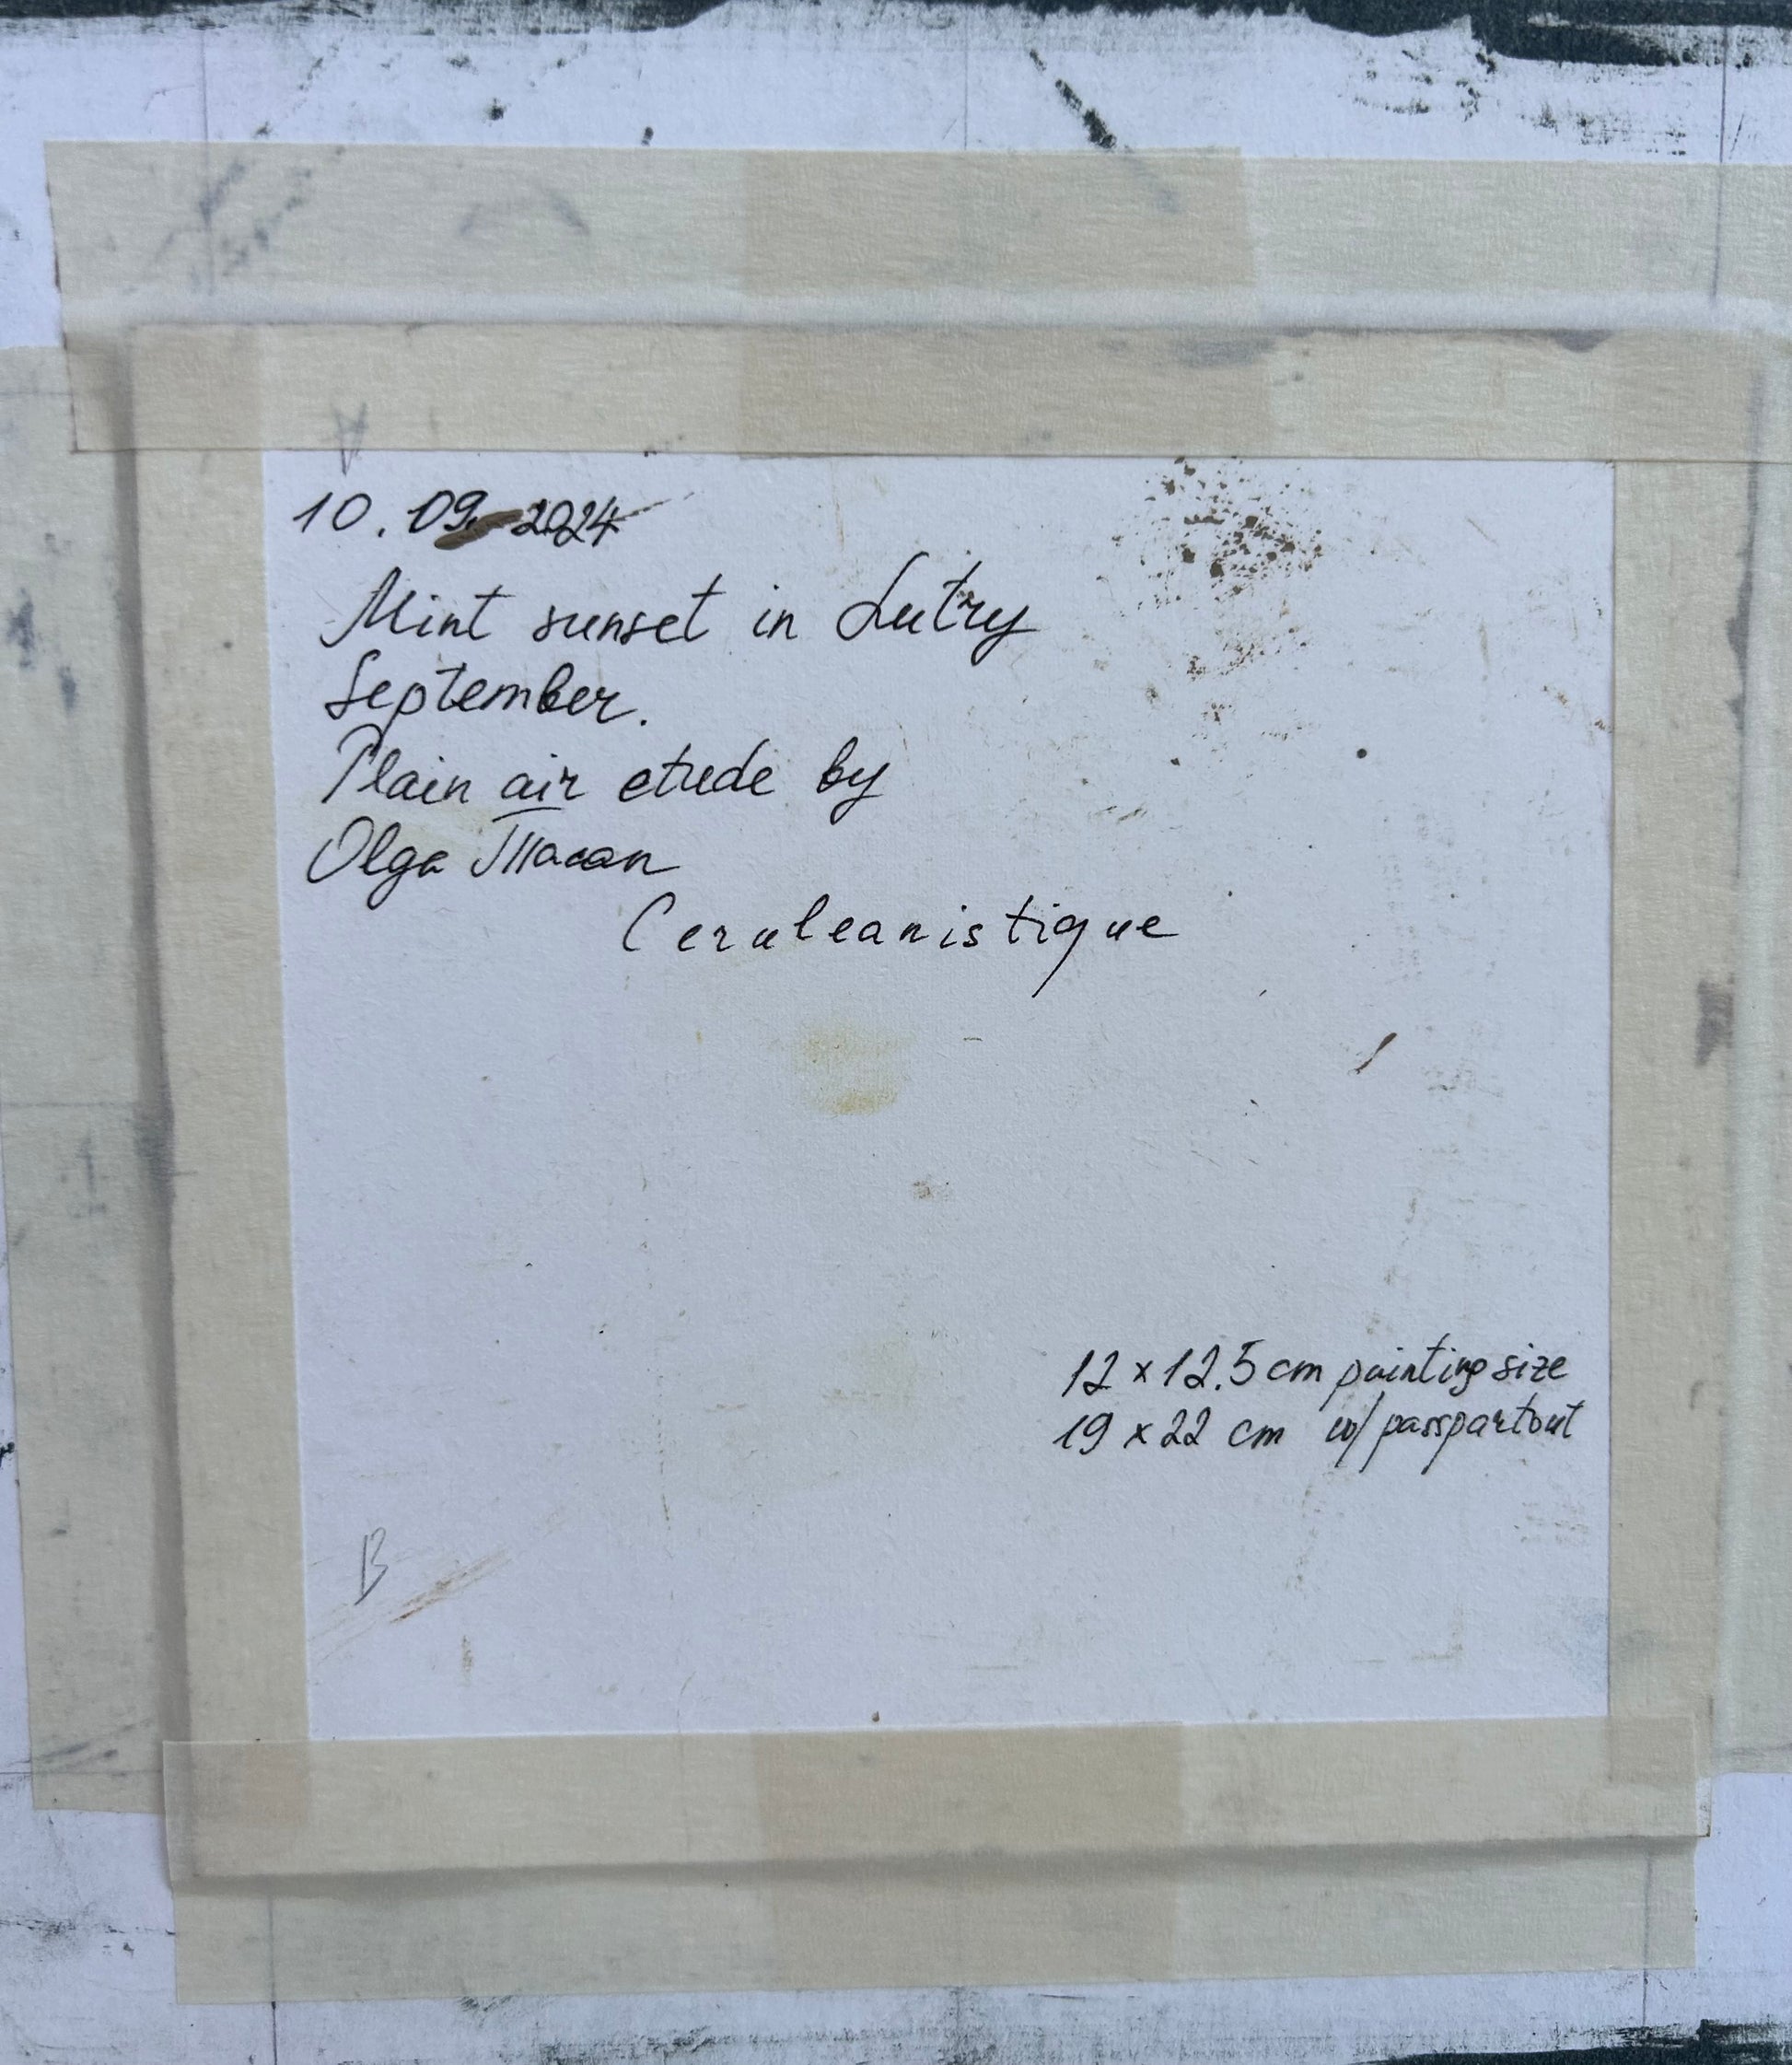 10.09.2024
Mint sunset in Lutry
September.
Plain air etude by
Olga
Ceruleanistique
12 x 12.5 cm painting size
19 x 22 cm w/ passpartout
B